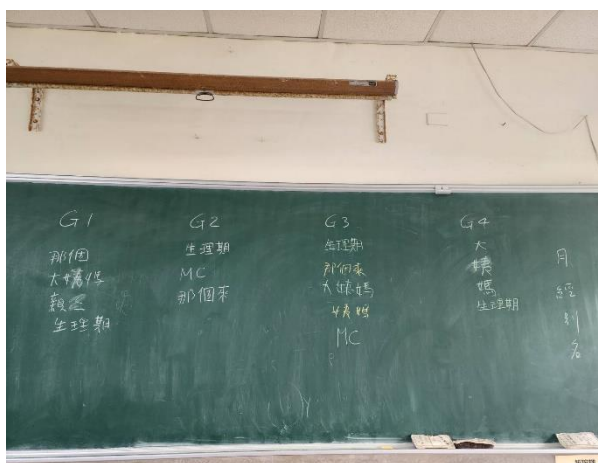 G1
那個
大姨媽
生理期
G2
生理期
MC
那個來
G3
生理期
那個來
大姨媽
姨媽
MC
G4
大
姨
媽
生理期
月
經
別
名